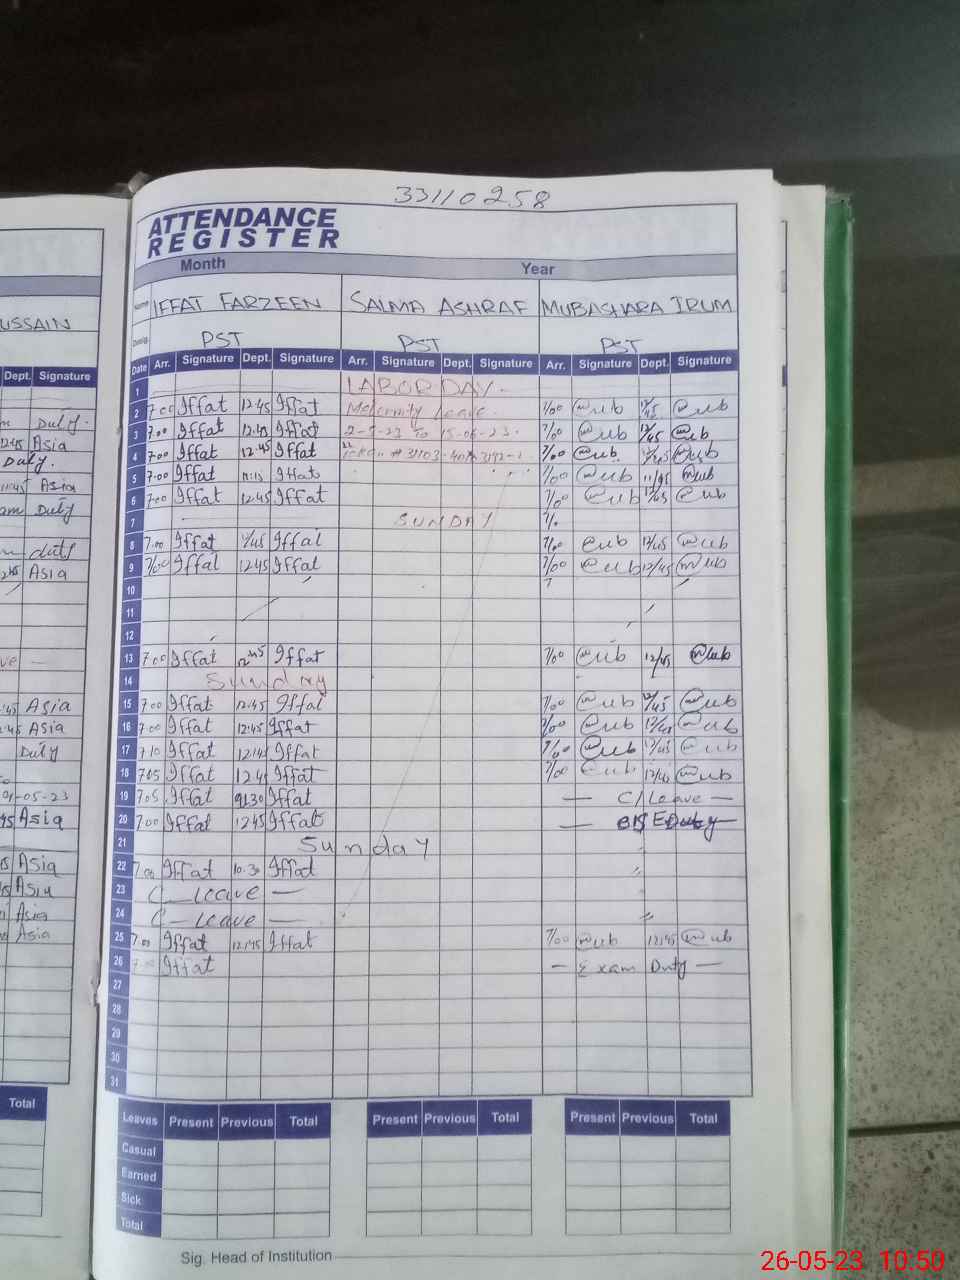 33110258
ATTENDANCE
REGISTER
Month Year
USSAIN
Name IFFAT FARZEEN SALMA ASHRAF MUBASHARA IRUM
Desig. PST PST PST
Dept. Signature
Date Arr. Signature Dept. Signature Arr. Signature Dept. Signature Arr. Signature Dept. Signature
1 LABOR DAY.
2 7.00 Iffat 12.45 Iffat Maternity Leave. 7/00 @ub 12/45 @ub
Duty.
3 7.00 Iffat 12.45 Iffat 2-5-23 To 15-06-23. 7/00 @ub 12/45 @ub
12:45 Asia
4 7.00 Iffat 12.45 Iffat 7/00 @ub. 12/45 @ub
Duty.
5 7.00 Iffat 11:15 Iffat 7/00 @ub 11/45 @ub
11:45 Asia
6 7.00 Iffat 12.45 Iffat 7/00 @ub 12/45 @ub
am Duty
7 SUNDAY
8 7.00 Iffat 12/45 Iffat 7/00 @ub 12/45 @ub
duty
9 7/00 Iffat 12.45 Iffat 7/00 @ub 12/45 @ub
Asia
10
11
12
13 7.00 Iffat 12.45 Iffat 7/00 @ub 12/45 @ub
14 Sunday
15 7.00 Iffat 12.45 Iffat 7/00 @ub 12/45 @ub
Asia
16 7.00 Iffat 12.45 Iffat 7/00 @ub 12/45 @ub
Asia
17 7.10 Iffat 12.45 Iffat 7/00 @ub 12/45 @ub
Duty
18 7.05 Iffat 12.45 Iffat 7/00 @ub 12/45 @ub
19 7.05 Iffat Iffat — C/Leave —
-05-23
20 7.00 Iffat 12.45 Iffat — Duty
Asia
21 Sunday
22 7.00 Iffat 10.30 Iffat
Asia
23 C — Leave —
Asia
24 C — Leave —
Asia
25 7.00 Iffat 12.45 Iffat 7/00 @ub 12/45 @ub
Asia
26 7.00 Iffat — Exam Duty —
27
28
29
30
31
Total
Leaves Present Previous Total Present Previous Total Present Previous Total
Casual
Earned
Sick
Total
Sig. Head of Institution
26-05-23 10:50